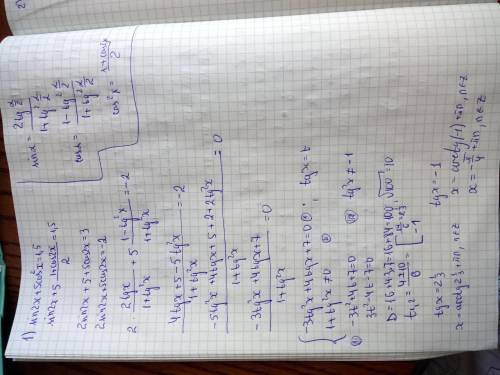 1) sin2x+5cos²x=1,5
sin2x+5 (1+cos2x)/2 = 1,5
2sin2x+5+5cos2x=3
2sin2x+5cos2x=-2
2 2tgx/(1+tg²x) + 5 (1-tg²x)/(1+tg²x) = -2
(4tgx+5-5tg²x)/(1+tg²x) = -2
(-5tg²x+4tgx+5+2+2tg²x)/(1+tg²x) = 0
(-3tg²x+4tgx+7)/(1+tg²x) = 0
{ -3tg²x+4tgx+7=0 ① ; tgx=t
1+tg²x≠0 ②
① -3t²+4t+7=0 ② tg²x≠-1
3t²-4t-7=0
D=16+4·3·7=16+84=100, √100=10
t₁,₂ = (4±10)/6 = [ 14/6 = 2⅓
-1
tgx=2⅓ tgx=-1
x=arctg2⅓+πn, n∈Z x=arctg(-1)+πn, n∈Z
x=-π/4+πn, n∈Z
sinα = 2tg α/2 / (1+tg² α/2)
cosα = (1-tg² α/2)/(1+tg² α/2)
cos²x = (1+cos2x)/2